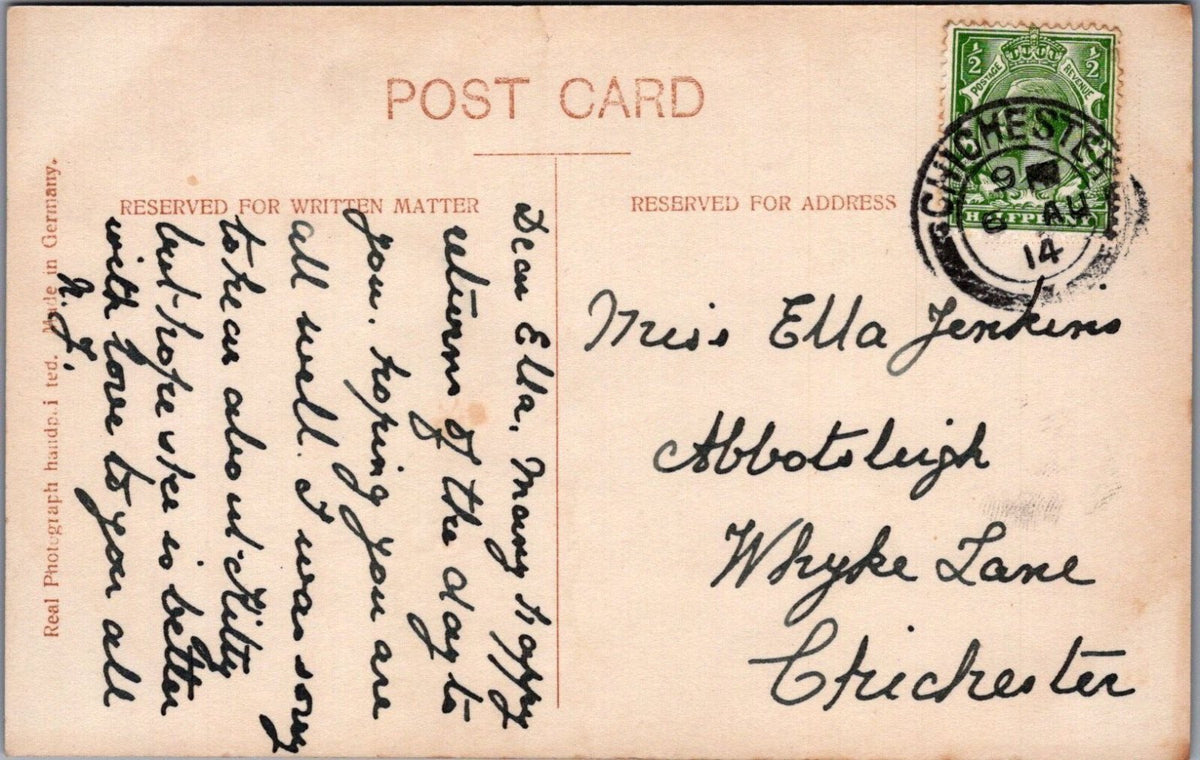 POST CARD
RESERVED FOR WRITTEN MATTER
RESERVED FOR ADDRESS
Real Photograph handp.i ted. Made in Germany.
Dear Ella, Many Happy
returns of the day to
you. hoping you are
all well. I was sorry
to hear about Kitty
but hope she is better
with love to you all
N.J.
½ ½
POSTAGE REVENUE
HALFPENNY
CHICHESTER
9
6 AU
14
Miss Ella Jenkins
Abbotsleigh
Whyke Lane
Chichester